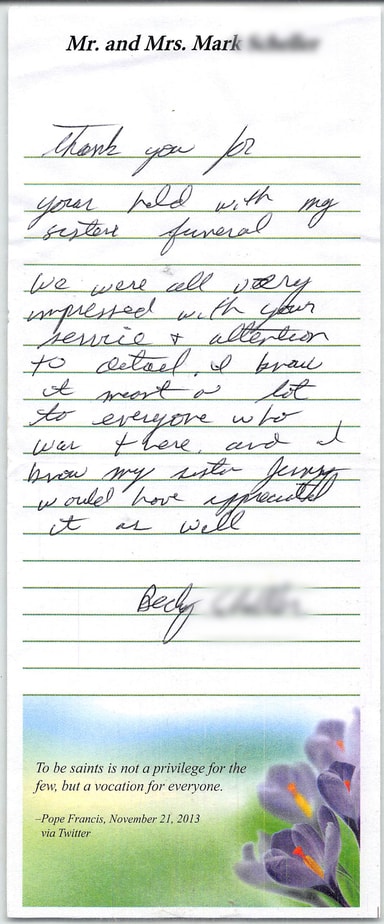 Mr. and Mrs. Mark
Thank you for
your held with my
sisters funeral
We were all very
impressed with your
service + attention
to detail. I know
it meant a lot
to everyone who
was there, and I
know my sister Jenny
would have appreciated
it as well
Becky
To be saints is not a privilege for the
few, but a vocation for everyone.
–Pope Francis, November 21, 2013
via Twitter